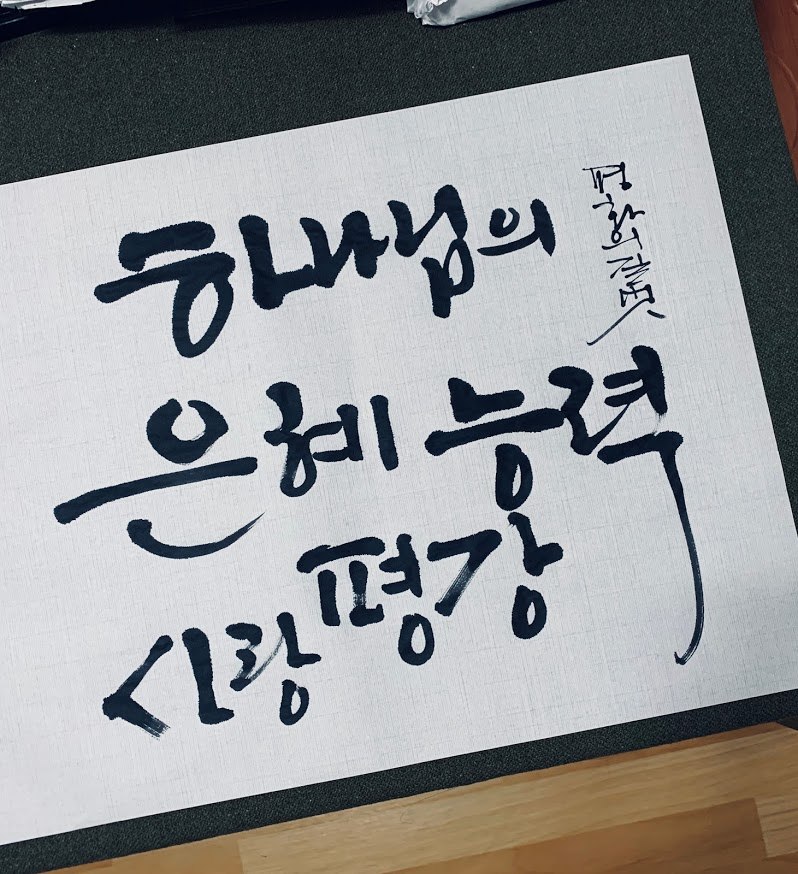 하나님의
은혜 능력
사랑 평강
평화의